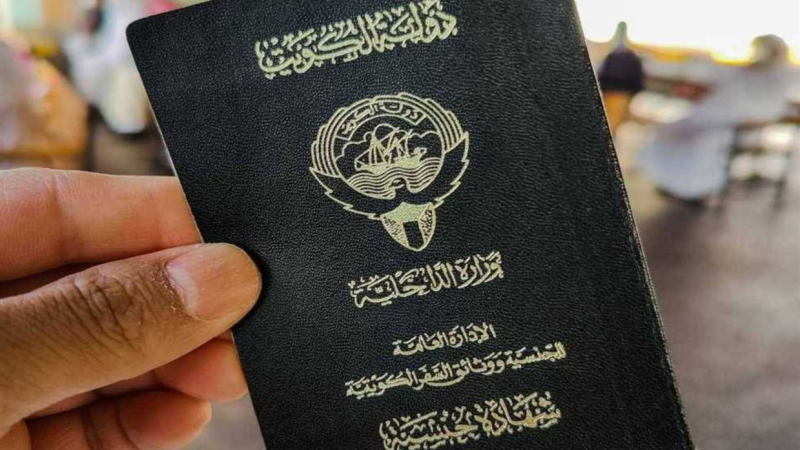 دولة الكويت
دولة الكويت
وزارة الداخلية
الإدارة العامة
للجنسية ووثائق السفر الكويتية
شهادة جنسية